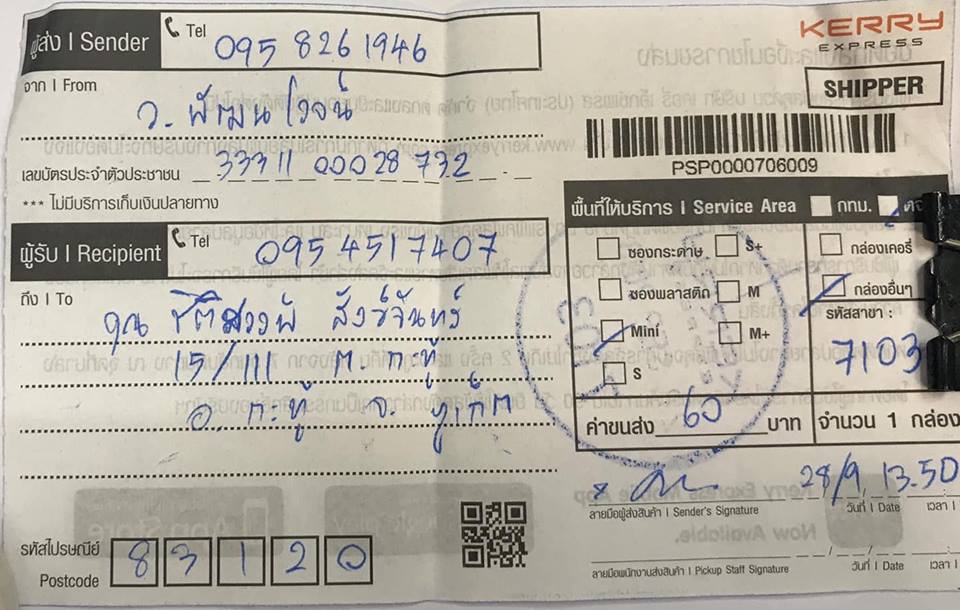 ผู้ส่ง | Sender
Tel 095 826 1946
KERRY
EXPRESS
SHIPPER
จาก | From
ว. พัฒนไวจน์
เลขบัตรประจำตัวประชาชน 33311 00028 732
PSP0000706009
*** ไม่มีบริการเก็บเงินปลายทาง
พื้นที่ให้บริการ | Service Area กทม.
ผู้รับ | Recipient
Tel 095 4517407
ซองกระดาษ S+ กล่องเคอรี่
ซองพลาสติก M กล่องอื่นๆ
Mini M+
S
รหัสสาขา :
7103
ถึง | To
คุณ
15/111 ต. กะทู้
อ. กะทู้ จ. ภูเก็ต
ค่าขนส่ง 60 บาท
จำนวน 1 กล่อง
28/9 13.50
ลายมือผู้ส่งสินค้า | Sender's Signature วันที่ | Date เวลา |
รหัสไปรษณีย์
Postcode 83120
ลายมือพนักงานส่งสินค้า | Pickup Staff Signature วันที่ | Date เวลา |